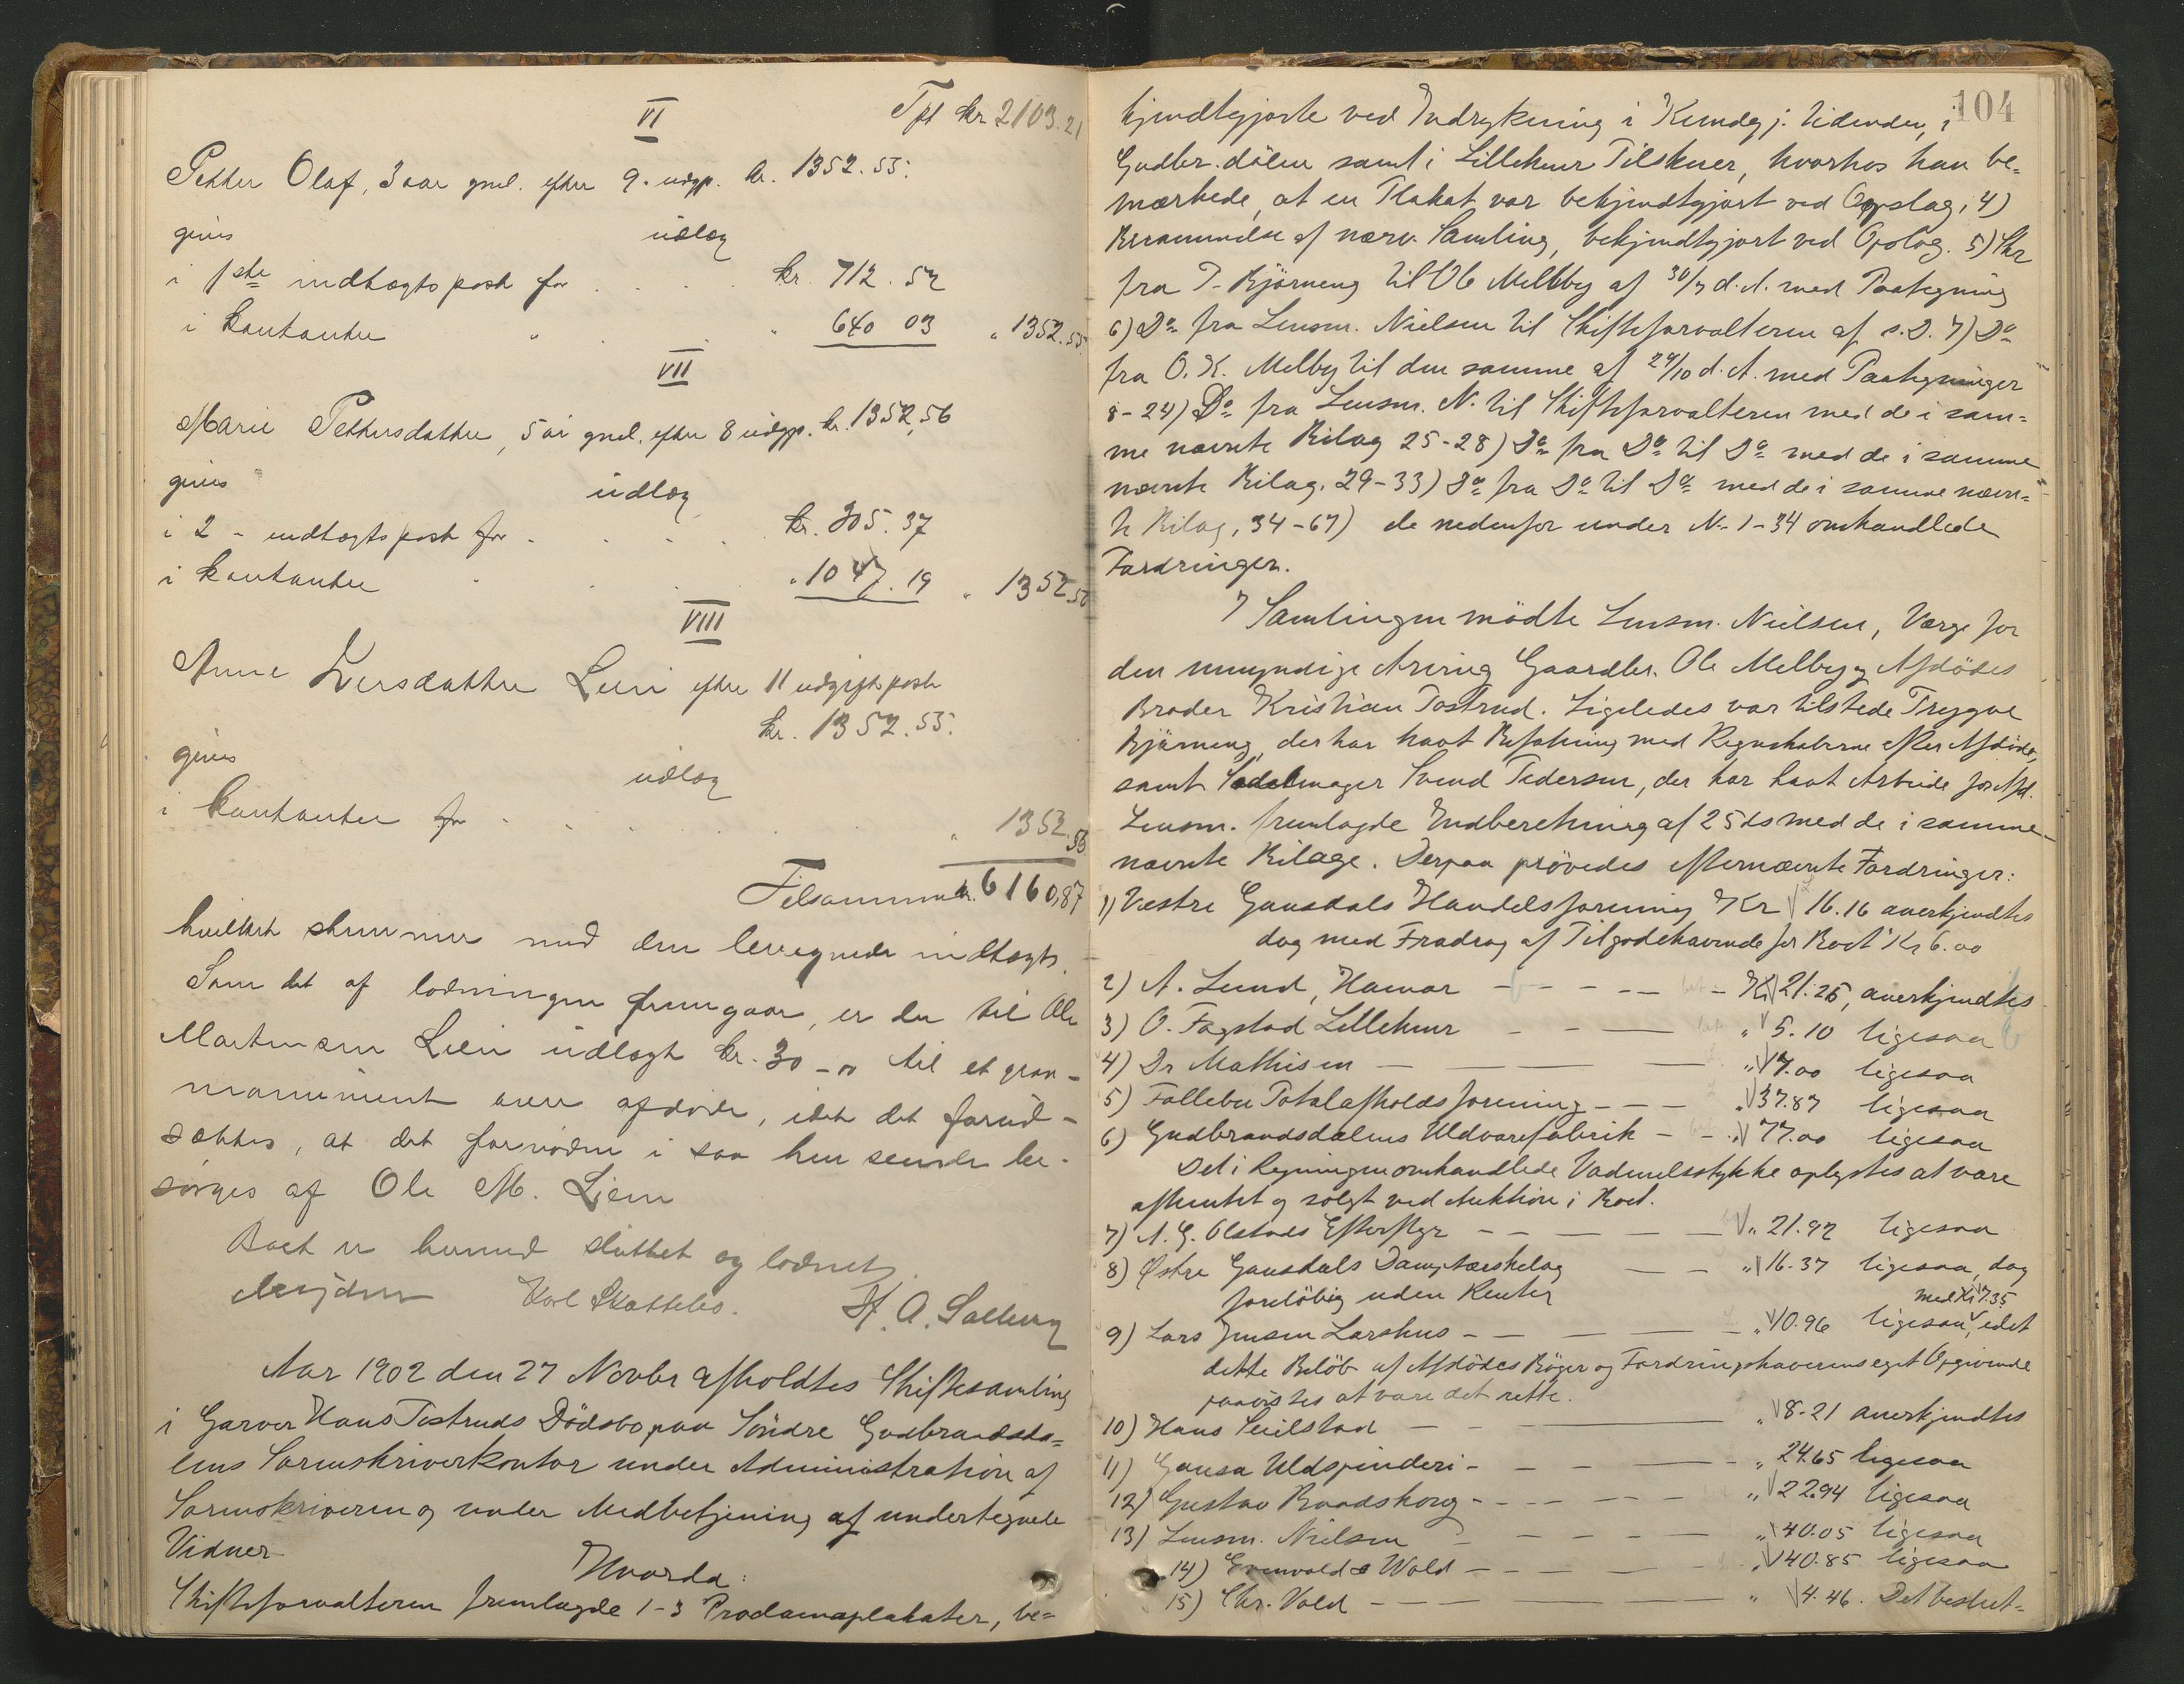 Tpt kr 2103.21
VI
Petter Olaf, 3 aar gml. efter 9. udgp. kr. 1352.55.
gives udlæg
i 1ste indtægtspost for . . . . kr. 712.52
i kontanter " . . " 640 03 " 1352.55
VII
Marie Pettersdatter, 5 år gml. efter 8 udgp. kr. 1352,56
gives udlæg
i 2 - indtægtspost for . . . . kr. 305.37
i kontanter " . . . " 1047.19 " 1352.56
VIII
Anne Iversdatter Lien efter 11 udgiftspost
kr. 1352.55.
gives udlæg
i kontanter for . . . . . . " 1352.55
Tilsammen kr. 6160,87
hvilket stemmer med den beregnede indtægt.
Som det af lodningen fremgaar, er der til Ole
Martinsen Lien udlagt kr. 30-00 til et grav-
monument over afdøde, idet det forud-
sættes, at det fornødne i saa henseende be-
sørges af Ole M. Lien
Boet er hermed sluttet og loddet.
Karl Skattebo. H. A. Solberg
Aar 1902 den 27 Novbr afholdtes Skiftesamling
i Garver Hans Tostruds Dödsbo paa Söndre Gudbrandsda=
lens Sorenskriverkontor under Administration af
Sorenskriveren og under Medbetjening af undertegnede
Vidner
Hvorda:
Skifteforvalteren fremlagde 1-3 Proclamaplakater, be=
104
kjendtgjorte ved Indrykning i Kundgj. Tidender, i
Gudbr.dölen samt i Lillehmr Tilskuer, hvorhos han be=
mærkede, at en Plakat var bekjendtgjort ved Opslag, 4)
Berammelse af nærv. Samling, bekjendtgjort ved Opslag. 5) Skr
fra T. Bjørneng til Ole Mellby af 30/7 d.A. med Paategning
6) Do fra Lensm. Nielsen til Skifteforvalteren af s.D. 7) Do
fra O. K. Melby til den samme af 29/10 d.A. med Paategninger
8-24) Do fra Lensm. N. til Skifteforvalteren med de i sam=
me nævnte Bilag 25-28) Do fra Do til Do med de i samme
nævnte Bilag. 29-33) Do fra Do til Do med de i samme nævn=
te Bilag, 34-67) de nedenfor under No 1-34 omhandlede
Fordringer.
I Samlingen mödte Lensm. Nielsen, Værge for
den umyndige Arving Gaardbr. Ole Melby og Afdödes
Broder Kristian Tostrud. Ligeledes var tilstede Trygve
Bjørneng, der har havt Befatning med Regnskaberne efter Afdöde,
samt Sadelmager Svend Pedersen, der har havt Arbeide for Afd.
Lensm. fremlagde Indberetning af 25 ds med de i samme
nævnte Bilage. Derpaa prövedes efternævnte Fordringer:
1) Vestre Gausdals Handelsforening Kr 16.16 anerkjendtes
dog med Fradrag af Tilgodehavende for Boet Kr 6.00
2) A. Lund, Hamar - - - - - Kr 21.25, anerkjendtes
3) O. Fagstad Lillehmr - - - " 5.10 ligesaa
4) Dr Mathisen - - - " 7.00 ligesaa
5) Follebu Totalafholdsforening - - - " 37.87 ligesaa
6) Gudbrandsdalens Uldvarefabrik - - " 77.00 ligesaa
Det i Regningen omhandlede Vadmelsstykke oplystes at være
afhentet og solgt ved Auktion i Boet.
7) A. G. Olstads Efterflgr - - - - - " 21.92 ligesaa
8) Østre Gausdals Damptærskelag - - " 16.37 ligesaa, dog
foreløbig uden Renter
med Kr 7.35
9) Lars Jensen Larshus - - - - " 10.96 ligesaa, idet
dette Beløb af Afdödes Böger og Fordringshaverens eget Opgivende
paavistes at være det rette.
10) Hans Seielstad - - - " 8.21 anerkjendtes
11) Gausa Uldspinderi - - - - - " 24.65 ligesaa
12) Gustav Baadshaug - - - - - - " 22.94 ligesaa
13) Lensm. Nielsen - - - - - " 40.05 ligesaa
14) Evenvold & Wold - - - - " 140.85 ligesaa
15) Chr. Vold - - - - - " 4.46. Det beslut=